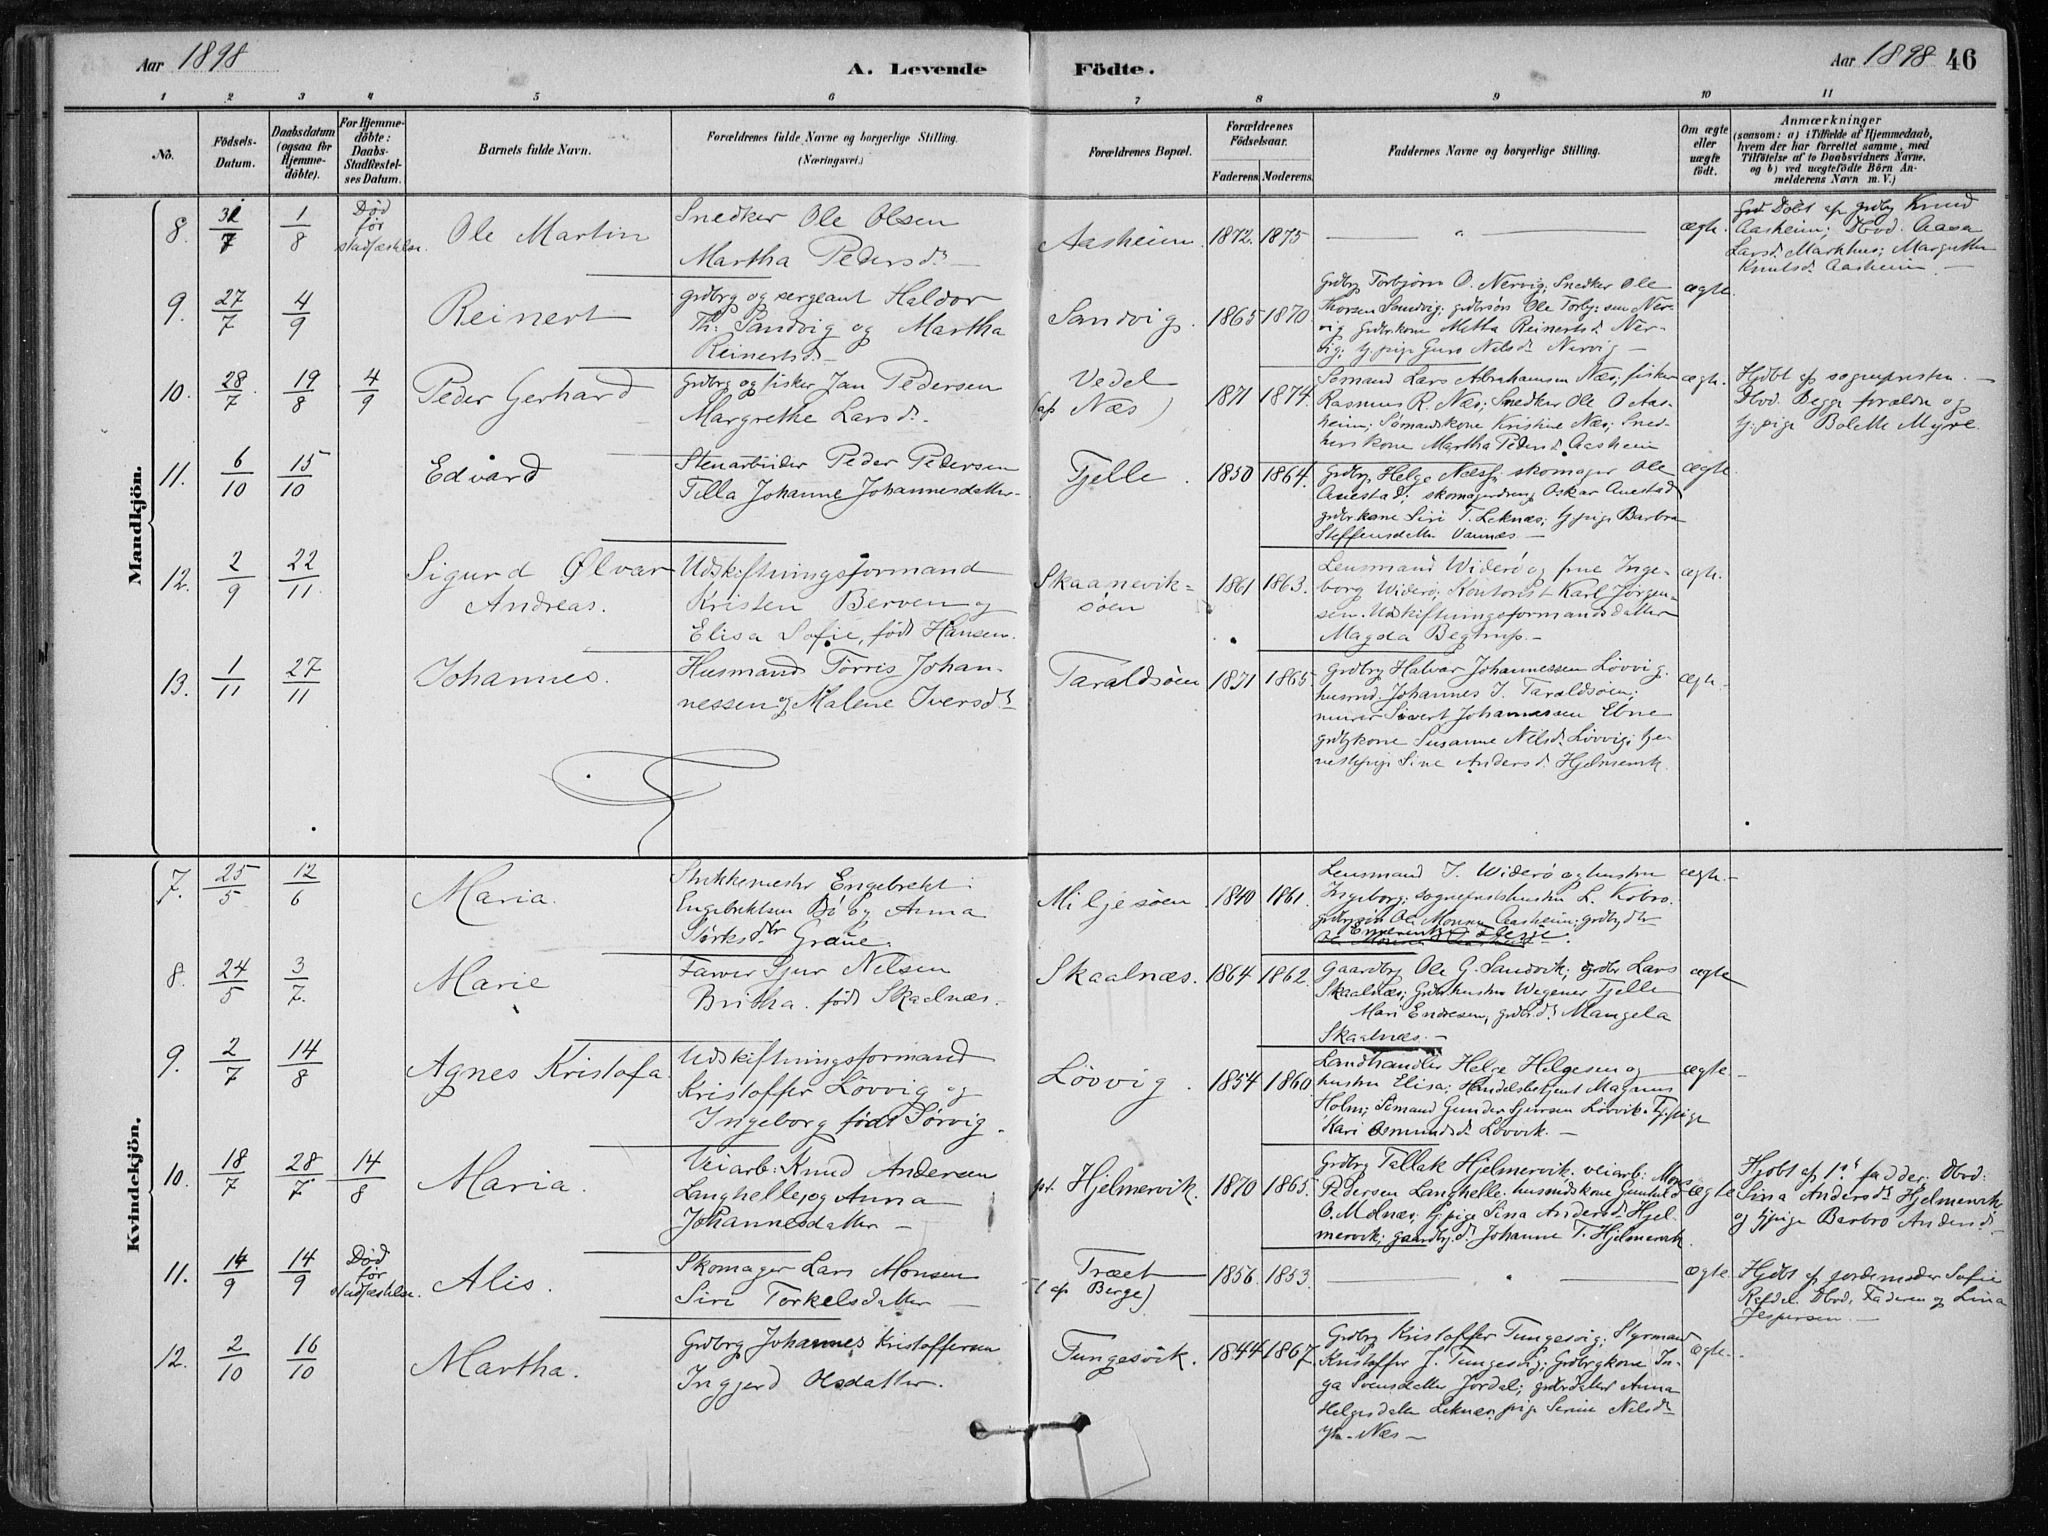 Aar 1898
A. Levende Födte.
Aar 1898 46
1 2 3 4 5 6 7 8 9 10 11
No.
Födsels-Datum.
Daabsdatum (ogsaa for Hjemmedöbte).
For Hjemmedöbte: Daabs-Stadfæstelses Datum.
Barnets fulde Navn.
Forældrenes fulde Navne og borgerlige Stilling. (Næringsvei.)
Forældrenes Bopæl.
Forældrenes Födselsaar.
Faderens. Moderens.
Faddernes Navne og borgerlige Stilling.
Om ægte eller uægte födt.
Anmærkninger
(saasom: a) i Tilfælde af Hjemmedaab, hvem der har forrettet samme, med Tilföielse af to Daabsvidners Navne. og b) ved uægtefödte Börn Anmelderens Navn m. V.)
Mandkjön.
8. 31/7 1/8 Død før stadfæstelse. Ole Martin
Snedker Ole Olsen
Martha Pedersd.
Aasheim 1872. 1875 ægte.
Døbt af grdbr Knud
Aasheim; Dbvd. Aasa
Larsd. Markhus; Margrethe
Knutsd. Aasheim
9. 27/7 4/9 Reinert
grdbrg og sergeant Haldor
Th: Sandvig og Martha
Reinertsd.
Sandvig. 1865 1870
Grdbrg Torbjørn O. Nervig; Snedker Ole
Thorsen Sandvig; grdbrsøn Ole Torbj:sen Ner-
vig Grdbrkone Metta Reinertsd. Ner-
vig; tj.pige Guro Nilsd. Nervig
ægte
10. 28/7 19/8 4/9 Peder Gerhard
Grdbrg og fisker Jan Pedersen
Margrethe Larsd.
Vedel
(af Næs) 1871 1874.
Sømand Lars Abrahamsen Næs; fisker
Rasmus R. Næs; Snedker Ole O. Aas-
heim; Sømandskone Kristine Næs; Sned-
kerskone Martha Pedersd. Aasheim
ægte.
Hjdbt af sognepresten.
Dbvd. Begge forældre og
tj.pige Bolette Myre.
11. 6/10 15/10 Edvard
Stenarbeider Peder Pedersen
Tilla Johanne Johannesdatter
Tjelle 1850 1864.
Grdbrg Helge Næs; skomager Ole
Auestad; skomagerdreng Oskar Auestad
grdbrkone Siri T. Leknæs; tj.pige Barbra
Steffensdatter Vannæs
ægte
12. 2/9 22/11 Sigurd Ølvar
Andreas.
Udskiftningsformand
Kristen Berven og
Elisa Sofie, født Hansen.
Skaanevik-
søen 1861 1863.
Lensmand Widerø og frue Inge-
borg Widerø; Kontorist Karl Jørgen-
sen. Udskiftningsformandsdatter
Magda Begtrup.
ægte.
13. 1/11 27/11 Johannes.
Husmand Tørris Johan-
nessen og Malene Iversd.
Taraldsøen 1871 1865.
grdbrg Halvar Johannessen Løvvig.
husmd. Johannes J. Taraldsøen;
murer Sivert Johannessen Ebne
grdbrkone Susanne Nilsd. Løvvig; tje-
nestepige Sine Andersd. Hjelmervik.
ægte.
Kvindekjön.
7. 25/5 12/6 Maria.
Stikkemester Engebrekt
Engebrektsen Bø og Anna
Størksdtr Graue.
Miljesøen 1840 1861.
Lensmand J. Widerø og hustru
Ingeborg; sognepresthustru L. Kobro.
grdbrsøn Ole Monsen Aasheim; grdbrdtr
ægte.
8. 24/5 3/7. Marie
Farver Sjur Nilsen
Britha. født Skaalnæs.
Skaalnæs. 1864 1862.
Gaardbrg Ole G. Sandvik; grdbr Lars
Skaalnæs; Grdbrhustru Wegener Tjelle
Mari Endresen, grdbrd. Mangela
Skaalnæs.
ægte
9. 2/7 14/8 Agnes Kristofa.
Udskiftningsformand
Kristoffer Løvvig og
Ingeborg født Sørvig.
Løvvig 1854 1860.
Landhandler Helge Helgesen og
hustru Elisa; Handelsbetjent Magnus
Holm; Sømand Gunder Sjursen Løvvik. Tj.pige
Kari Osmundsd. Løvvik.
ægte
10. 18/7 28/7 14/8 Maria.
Veiarb: Knud Andersen
Langhelle og Anna
Johannesdatter
pt. Hjelmervik. 1870 1865.
Grdbrg Tallak Hjelmervik; veiarb: Mons
Pedersen Langhelle; husmdskone Gunhild
O. Molnæs; tj.pige Sina Andersd. Hjel-
mervik; gaardbrg.d. Johanne T. Hjelmervik
ægte
Hjdbt af 1ste fadder; Dbvd:
Sina Andersd. Hjelmervik
og tj.pige Barbro Andersd.
11. 14/9 14/9 Død før stadfæstelse. Alis.
Skomager Lars Monsen
Siri Torkelsdatter
Træet
(af Berge) 1856. 1853. ægte
Hjdbt af jordemoder Sofie
Refdel. Dbvd. Faderen og Lina
Jespersen.
12. 2/10 16/10 Martha.
Grdbrg Johannes Kristoffersen
Ingjerd Olsdatter.
Tungesvik. 1844 1867
Grdbrg Kristoffer Tungesvig; Styrmand
Kristoffer J. Tungesvig; Grdbrgkone In-
ga Svensdatter Jordal; grdbrdatter Anna
Helgesdatter Leknæs; pige Serine Nilsd.
Næs
ægte.